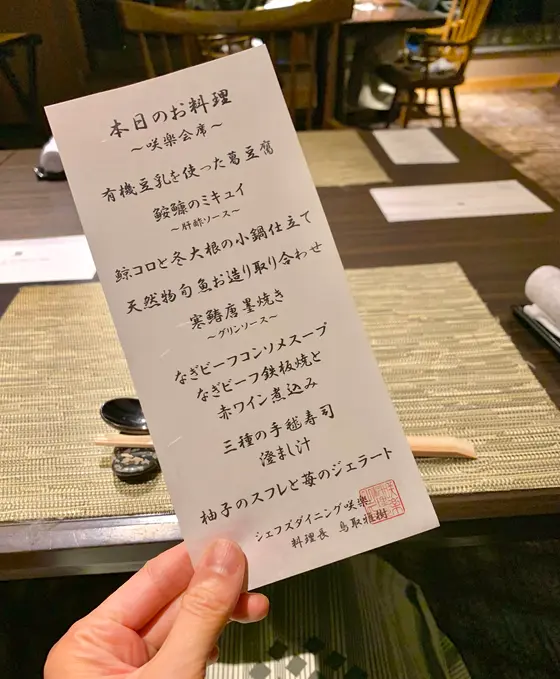 本日のお料理
～咲楽会席～
有機豆乳を使った葛豆腐
鮟鱇のミキュイ
～肝酢ソース～
鯨コロと冬大根の小鍋仕立て
天然物旬魚お造り取り合わせ
寒鰆唐墨焼き
～グリンソース～
なぎビーフコンソメスープ
なぎビーフ鉄板焼と
赤ワイン煮込み
三種の手毬寿司
澄まし汁
柚子のスフレと苺のジェラート
シェフズダイニング咲楽
料理長 鳥取雅樹